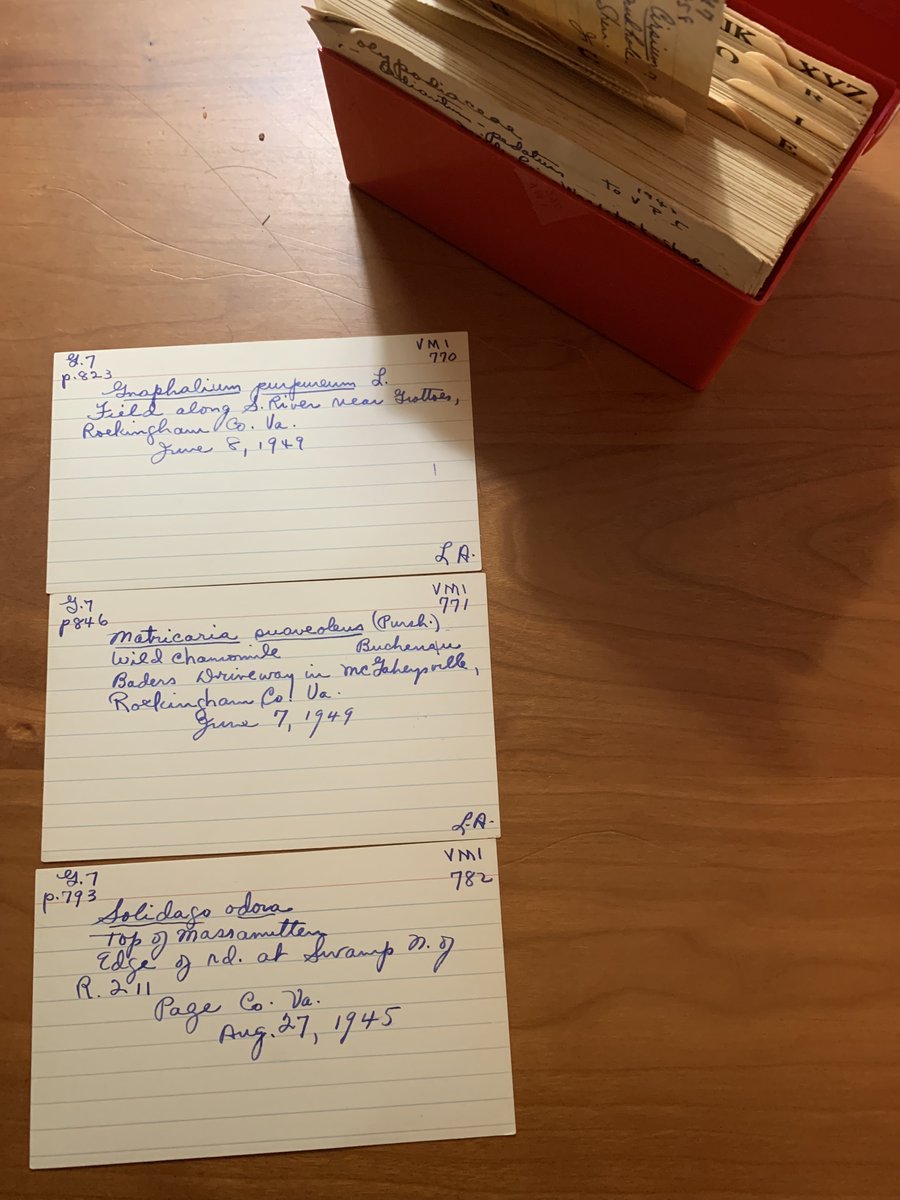 IK
XYZ
C
R
I
E
Cirsium
olypodiaceae
Adiantum - pedatum
1945
to V P I
G. 7
VMI
p. 823
770
Gnaphalium purpureum L.
Field along S. River near Grottoes,
Rockingham Co. Va.
June 8, 1949
L A.
G. 7
VMI
p846
771
Matricaria suaveolens (Pursh.)
Wild Chamomile Buchenau
Baders Driveway in McGaheysville,
Rockingham Co. Va.
June 7, 1949
L.A.
G. 7
VMI
p. 793
782
Solidago odora
Top of Massanutten
Edge of rd. at Swamp N. of
R. 211
Page Co. Va.
Aug. 27, 1945